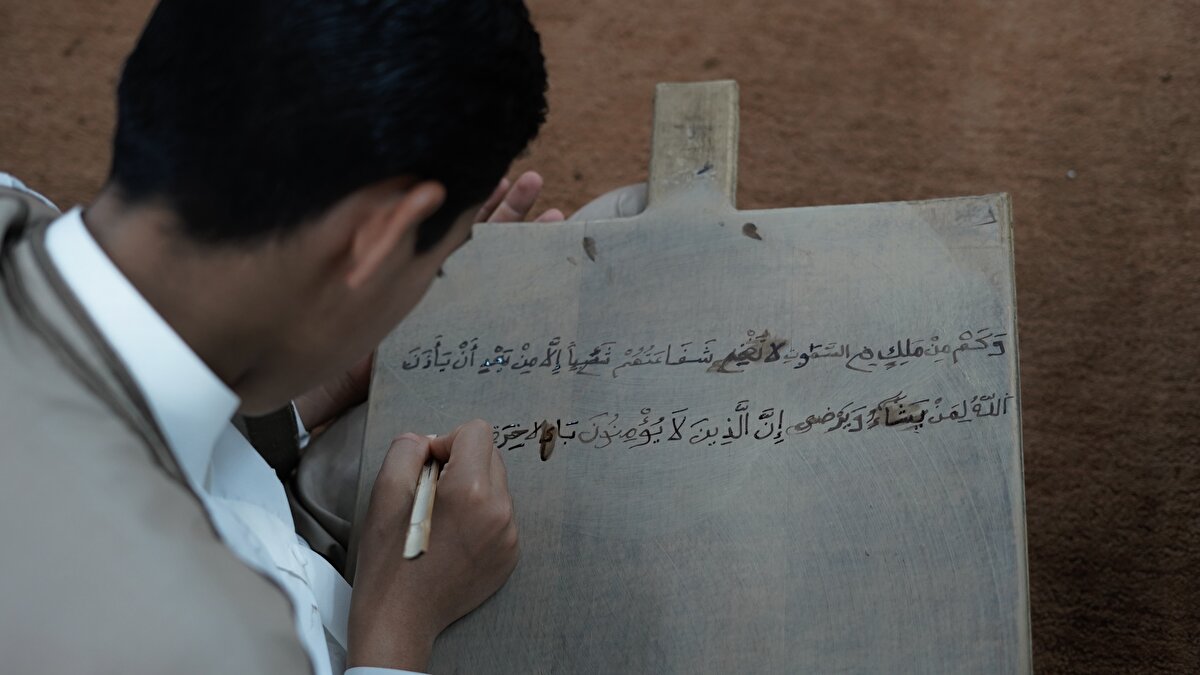 وَكَم مِّن مَّلَكٍ فِي السَّمَٰوَٰتِ لَا تُغْنِي شَفَاعَتُهُمْ شَيْـًٔا إِلَّا مِنۢ بَعْدِ أَنْ يَأْذَنَ
اللَّهُ لِمَنْ يَشَآءُ وَيَرْضَى إِنَّ الَّذِينَ لَا يُؤْمِنُونَ بِالْأَخِرَةِ